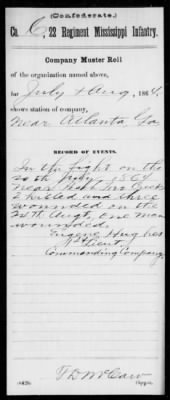 (Confederate.)
Co. C, 22 Regiment Mississippi Infantry.
Company Muster Roll
of the organization named above,
for July & Aug, 1864,
shows station of company,
Near Atlanta Ga
RECORD OF EVENTS.
In the fight on the
20th July 1864
near Peach Tree Creek
2 killed and three
wounded on the
24th Augt, one man
wounded.
Eugene Hughes
1st Lieut
Commanding Company
T D McCaw
Copyist.